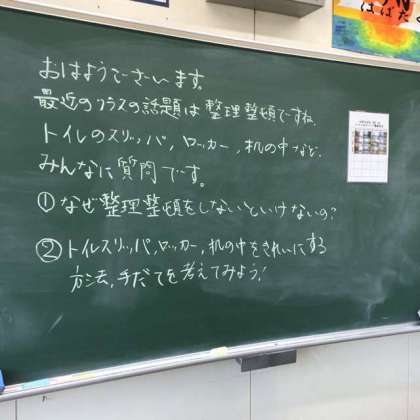 おはようございます。
最近のクラスの話題は整理整頓ですね。
トイレのスリッパ、ロッカー、机の中など、
みんなに質問です。
①なぜ整理整頓をしないといけないの?
②トイレスリッパ、ロッカー、机の中をきれいにする
方法、手だてを考えてみよう!